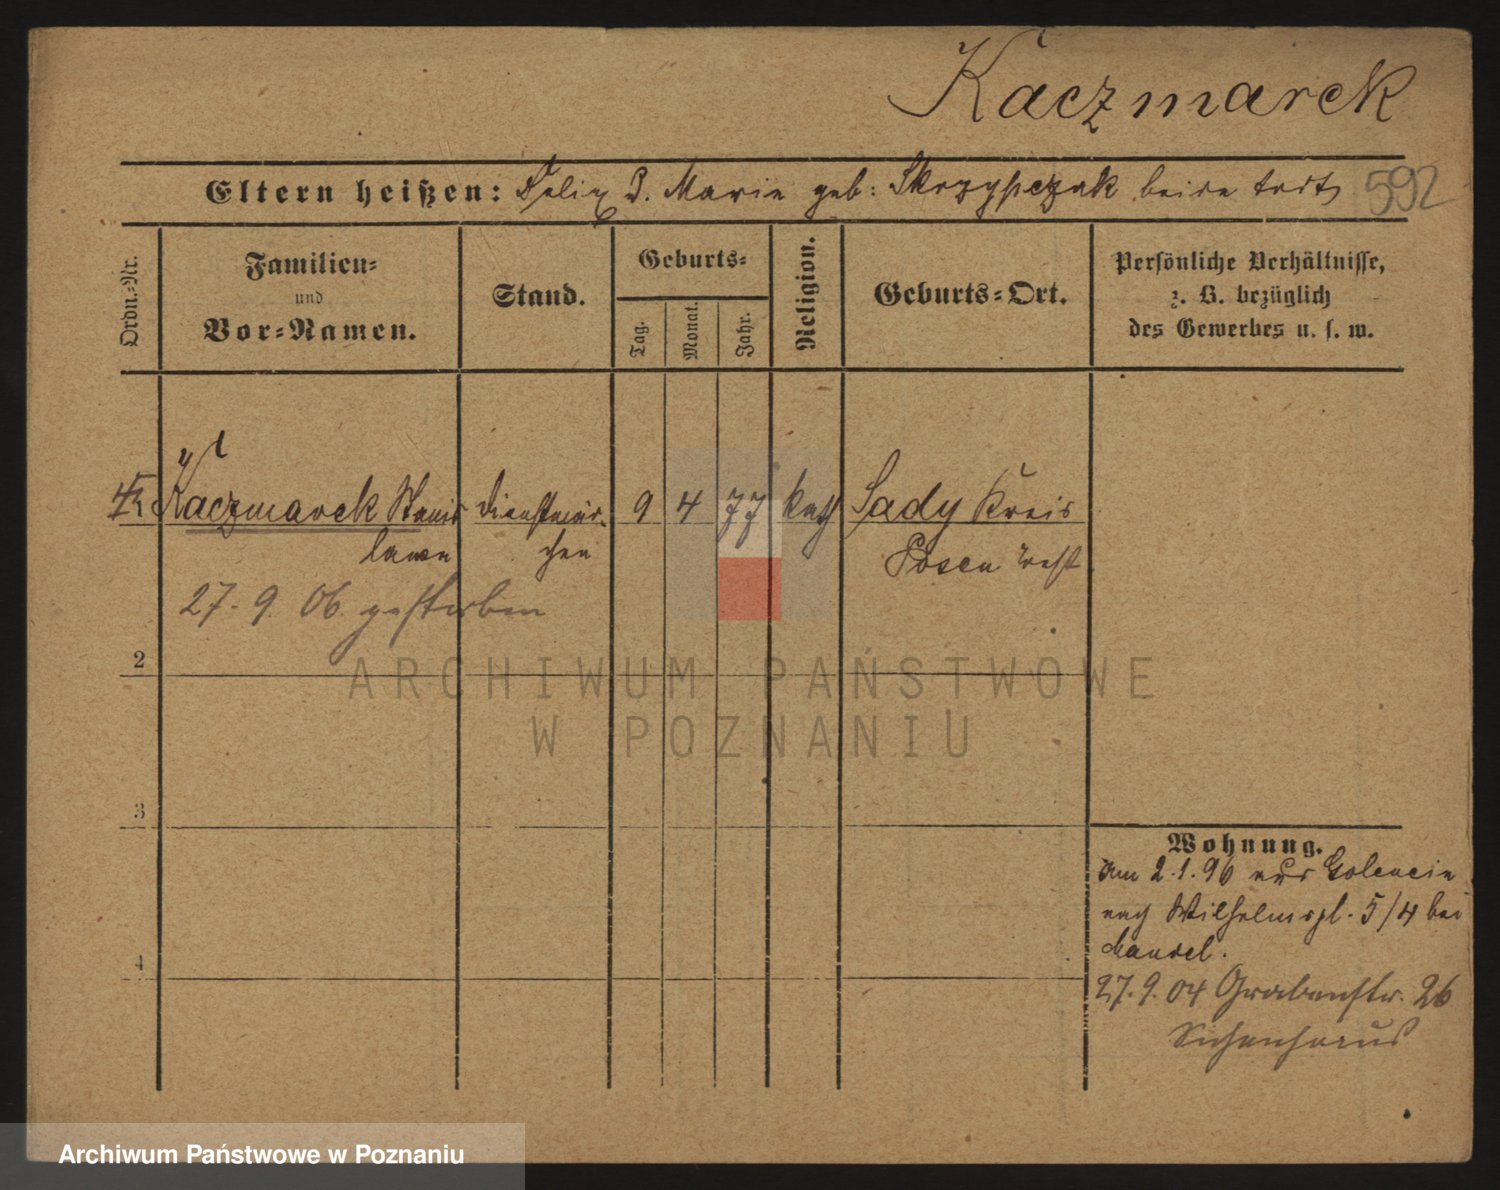 Kaczmarek
Eltern heißen: Felix u. Marie geb: Skrzypczak beide todt 592
Ordn.-Nr.
Familien-
und
Vor-Namen.
Stand.
Geburts-
Tag.
Monat.
Jahr.
Religion.
Geburts-Ort.
Persönliche Verhältnisse,
z. B. bezüglich
des Gewerbes u. s. w.
Kaczmarek Stanis Dienstmäd- 9 4 77 kath Sady Kreis
lawa chen Posen West
27. 9. 06. gestorben
2
3
4
Wohnung.
Am 2.1.96 aus Golencin
nach Wilhelmspl. 5/4 bei
27.9.04 Grabenstr. 26
Siechenhaus
ARCHIWUM PAŃSTWOWE
W POZNANIU
Archiwum Państwowe w Poznaniu